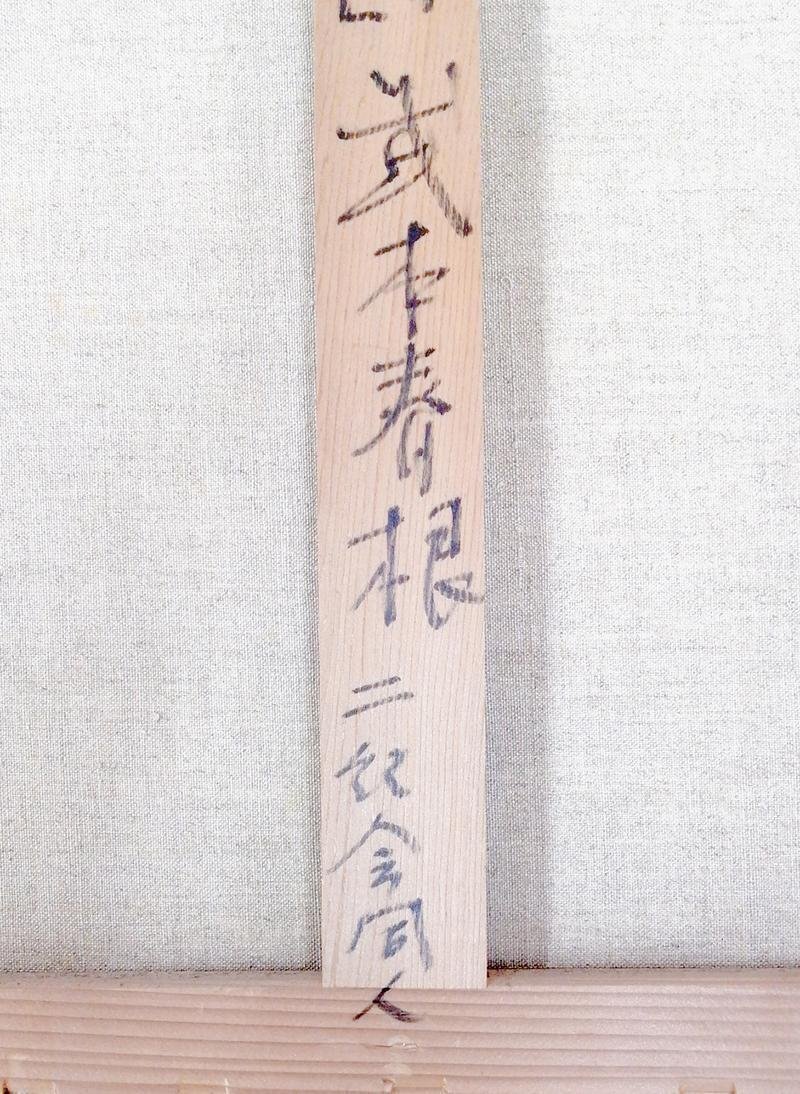 本春根
二紀会同人